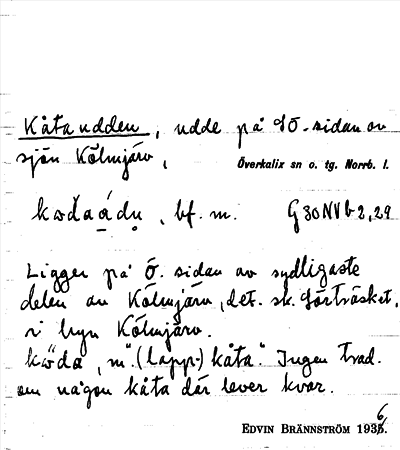 Kåtaudden, udde på SÖ-sidan av
sjön Kölmjärv,
Överkalix sn o. tg. Norrb. l.
bf. m. G30NVb2,29
Ligger på Ö. sidan av sydligaste
delen av Kölmjärv, det. sk.
i byn Kölmjärv.
m. "(lapp-) kåta." Ingen trad.
om någon kåta där lever kvar.
EDVIN BRÄNNSTRÖM 1936.